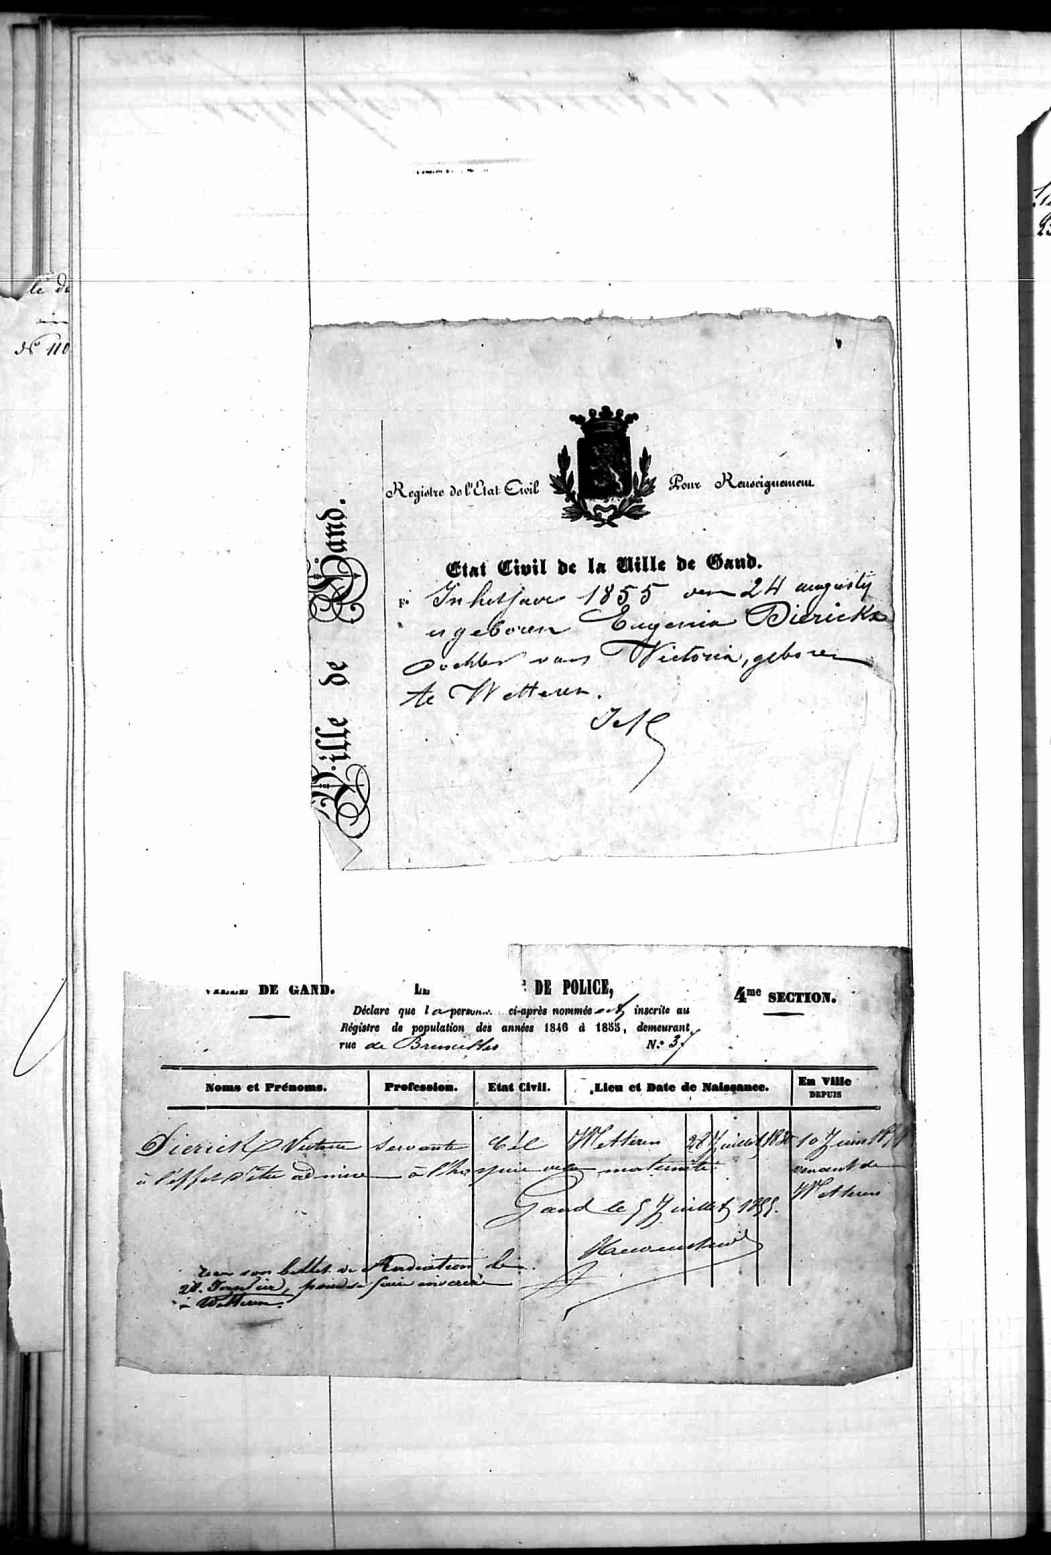 Ville de Gand.
Registre de l'Etat Civil Pour Renseignement
Etat Civil de la Ville de Gand.
In het jaar 1855 den 24 augusty
is geboren Eugenia Dierickx
dochter van Victoria, geboren
te Wetteren.
DE GAND. LE DE POLICE, 4me SECTION.
Déclare que la personne ci-après nommée est inscrite au
Régistre de population des années 1846 à 1855, demeurant
rue de Bruxelles N.o 37
Noms et Prénoms. Profession. Etat Civil. Lieu et Date de Naissance. En Ville DEPUIS
Dierickx Victoire servante Cél Wetteren 28 Juillet 10 Juin
à l'effet d'être admise à l'hospice de maternité venant de
Wetteren
Gand le 5 Juillet 1855.
son billet de Radiation le
à Wetteren.